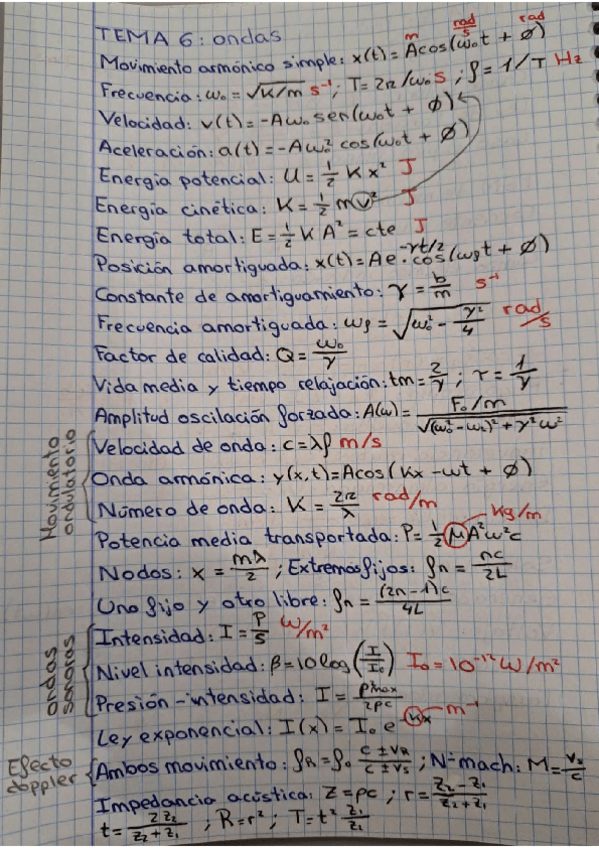 TEMA 6: ondas
Movimiento armónico simple: x(t) = A cos(ω₀t + ø) m rad/s rad
Frecuencia: ω₀ = √K/m s⁻¹; T = 2π/ω₀ s; f = 1/T Hz
Velocidad: v(t) = -Aω₀ sen(ω₀t + ø)
Aceleración: a(t) = -Aω₀² cos(ω₀t + ø)
Energía potencial: U = 1/2 K x² J
Energía cinética: K = 1/2 m v² J
Energía total: E = 1/2 K A² = cte J
Posición amortiguada: x(t) = Ae^-γt/2 · cos(ωft + ø)
Constante de amortiguamiento: γ = b/m s⁻¹
Frecuencia amortiguada: ωf = √ω₀² - γ²/4 rad/s
Factor de calidad: Q = ω₀/γ
Vida media y tiempo relajación: tm = 2/γ; τ = 1/γ
Amplitud oscilación forzada: A(ω) = F₀/m / √(ω₀² - ω²)² + γ²ω²
Movimiento ondulatorio
Velocidad de onda: c = λf m/s
Onda armónica: y(x,t) = A cos(Kx - ωt + ø)
Número de onda: K = 2π/λ rad/m
Potencia media transportada: P = 1/2 μ A²ω²c kg/m
Nodos: x = mλ/2; Extremos fijos: fn = nc/2L
Uno fijo y otro libre: fn = (2n - 1)c/4L
ondas sonoras
Intensidad: I = P/S W/m²
Nivel intensidad: β = 10 log(I/I₀) I₀ = 10⁻¹² W/m²
Presión - intensidad: I = Pmax/2ρc
Ley exponencial: I(x) = I₀ e^-αx m⁻¹
Efecto doppler
Ambos movimiento: fR = f₀ c ± vR / c ± vs; N-mach: M = vs/c
Impedancia acústica: Z = ρc; r = Z₂ - Z₁ / Z₂ + Z₁
t = 2Z₂ / Z₂ + Z₁; R = r²; T = t² Z₁/Z₂